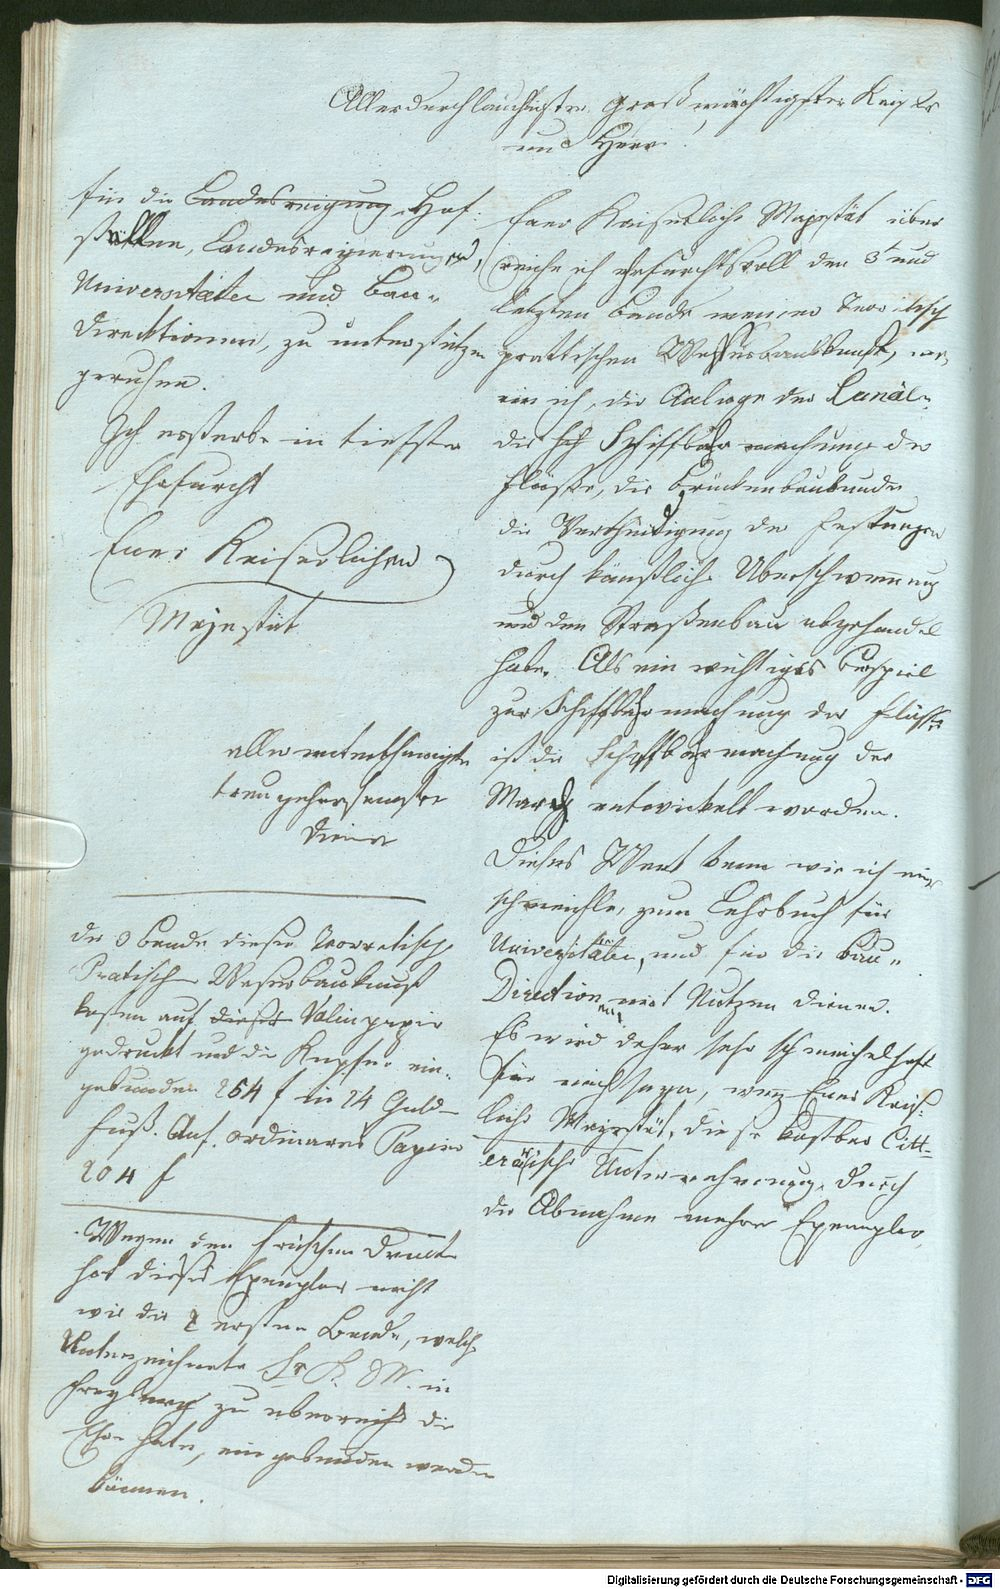 Allerdurchlauchtigster Großmächtigster Kaiser
und Herr
Euer Kaiserliche Majestät über
reiche ich ehrfurchtsvoll den 3t und
letzten Bande meiner Teoretisch
praktischen Wasserbaukunst, wo
rin ich, die Anlage der Canäle
die Schiffbahr machung der
Flüsse, die Brückenbaukunde
die Vertheidigung der Festungen
durch künstliche Uberschwemung
und den Straßenbau abgehandelt
habe. Als ein wichtiges Beyspiel
zur Schiffbahrmachung der Flüsse
ist die Schiffbarmachung der
March entwickelt worden.
Dieses Werk kann wie ich mir
schmeichle, zum Lehrbuch für
Universitäten, und für die Bau-
Directionen mit Nutzen dienen.
Es wird daher sehr schmeichelhaft
für mich seyn, wenn Euer Kaiser-
liche Majestät, diese kostbare Litt-
erarische Unternehmung, durch
die Abnahme mehrer Exemplar
für die Landesregirung Hof-
stellen, Landesregierungen,
Universitäten und Bau-
directionen, zu unterstützen
geruhen.
Ich ersterbe in tiefster
Ehrfurcht
Euer Kaiserlichen
Majestät
aller unterthänigster
treugehorsamster
Diener
die 3 Bande dieser Teoretisch
Pratisch Wasserbaukunst
kosten auf dieses Velinpapir
gedruckt und die Kupfer ein-
gebunden 254 f in 24 Guld-
fuß. Auf ordinares Papier
204 f
Wegen den frischen Druck
hat dieses Exemplar nicht
wie die 2 ersten Bande, welche
Unterzeichnete Sr. K. M. in
Freyburg zu uberreichen die
Ehre hatte, eingebunden werden
können.
Digitalisierung gefördert durch die Deutsche Forschungsgemeinschaft - DFG